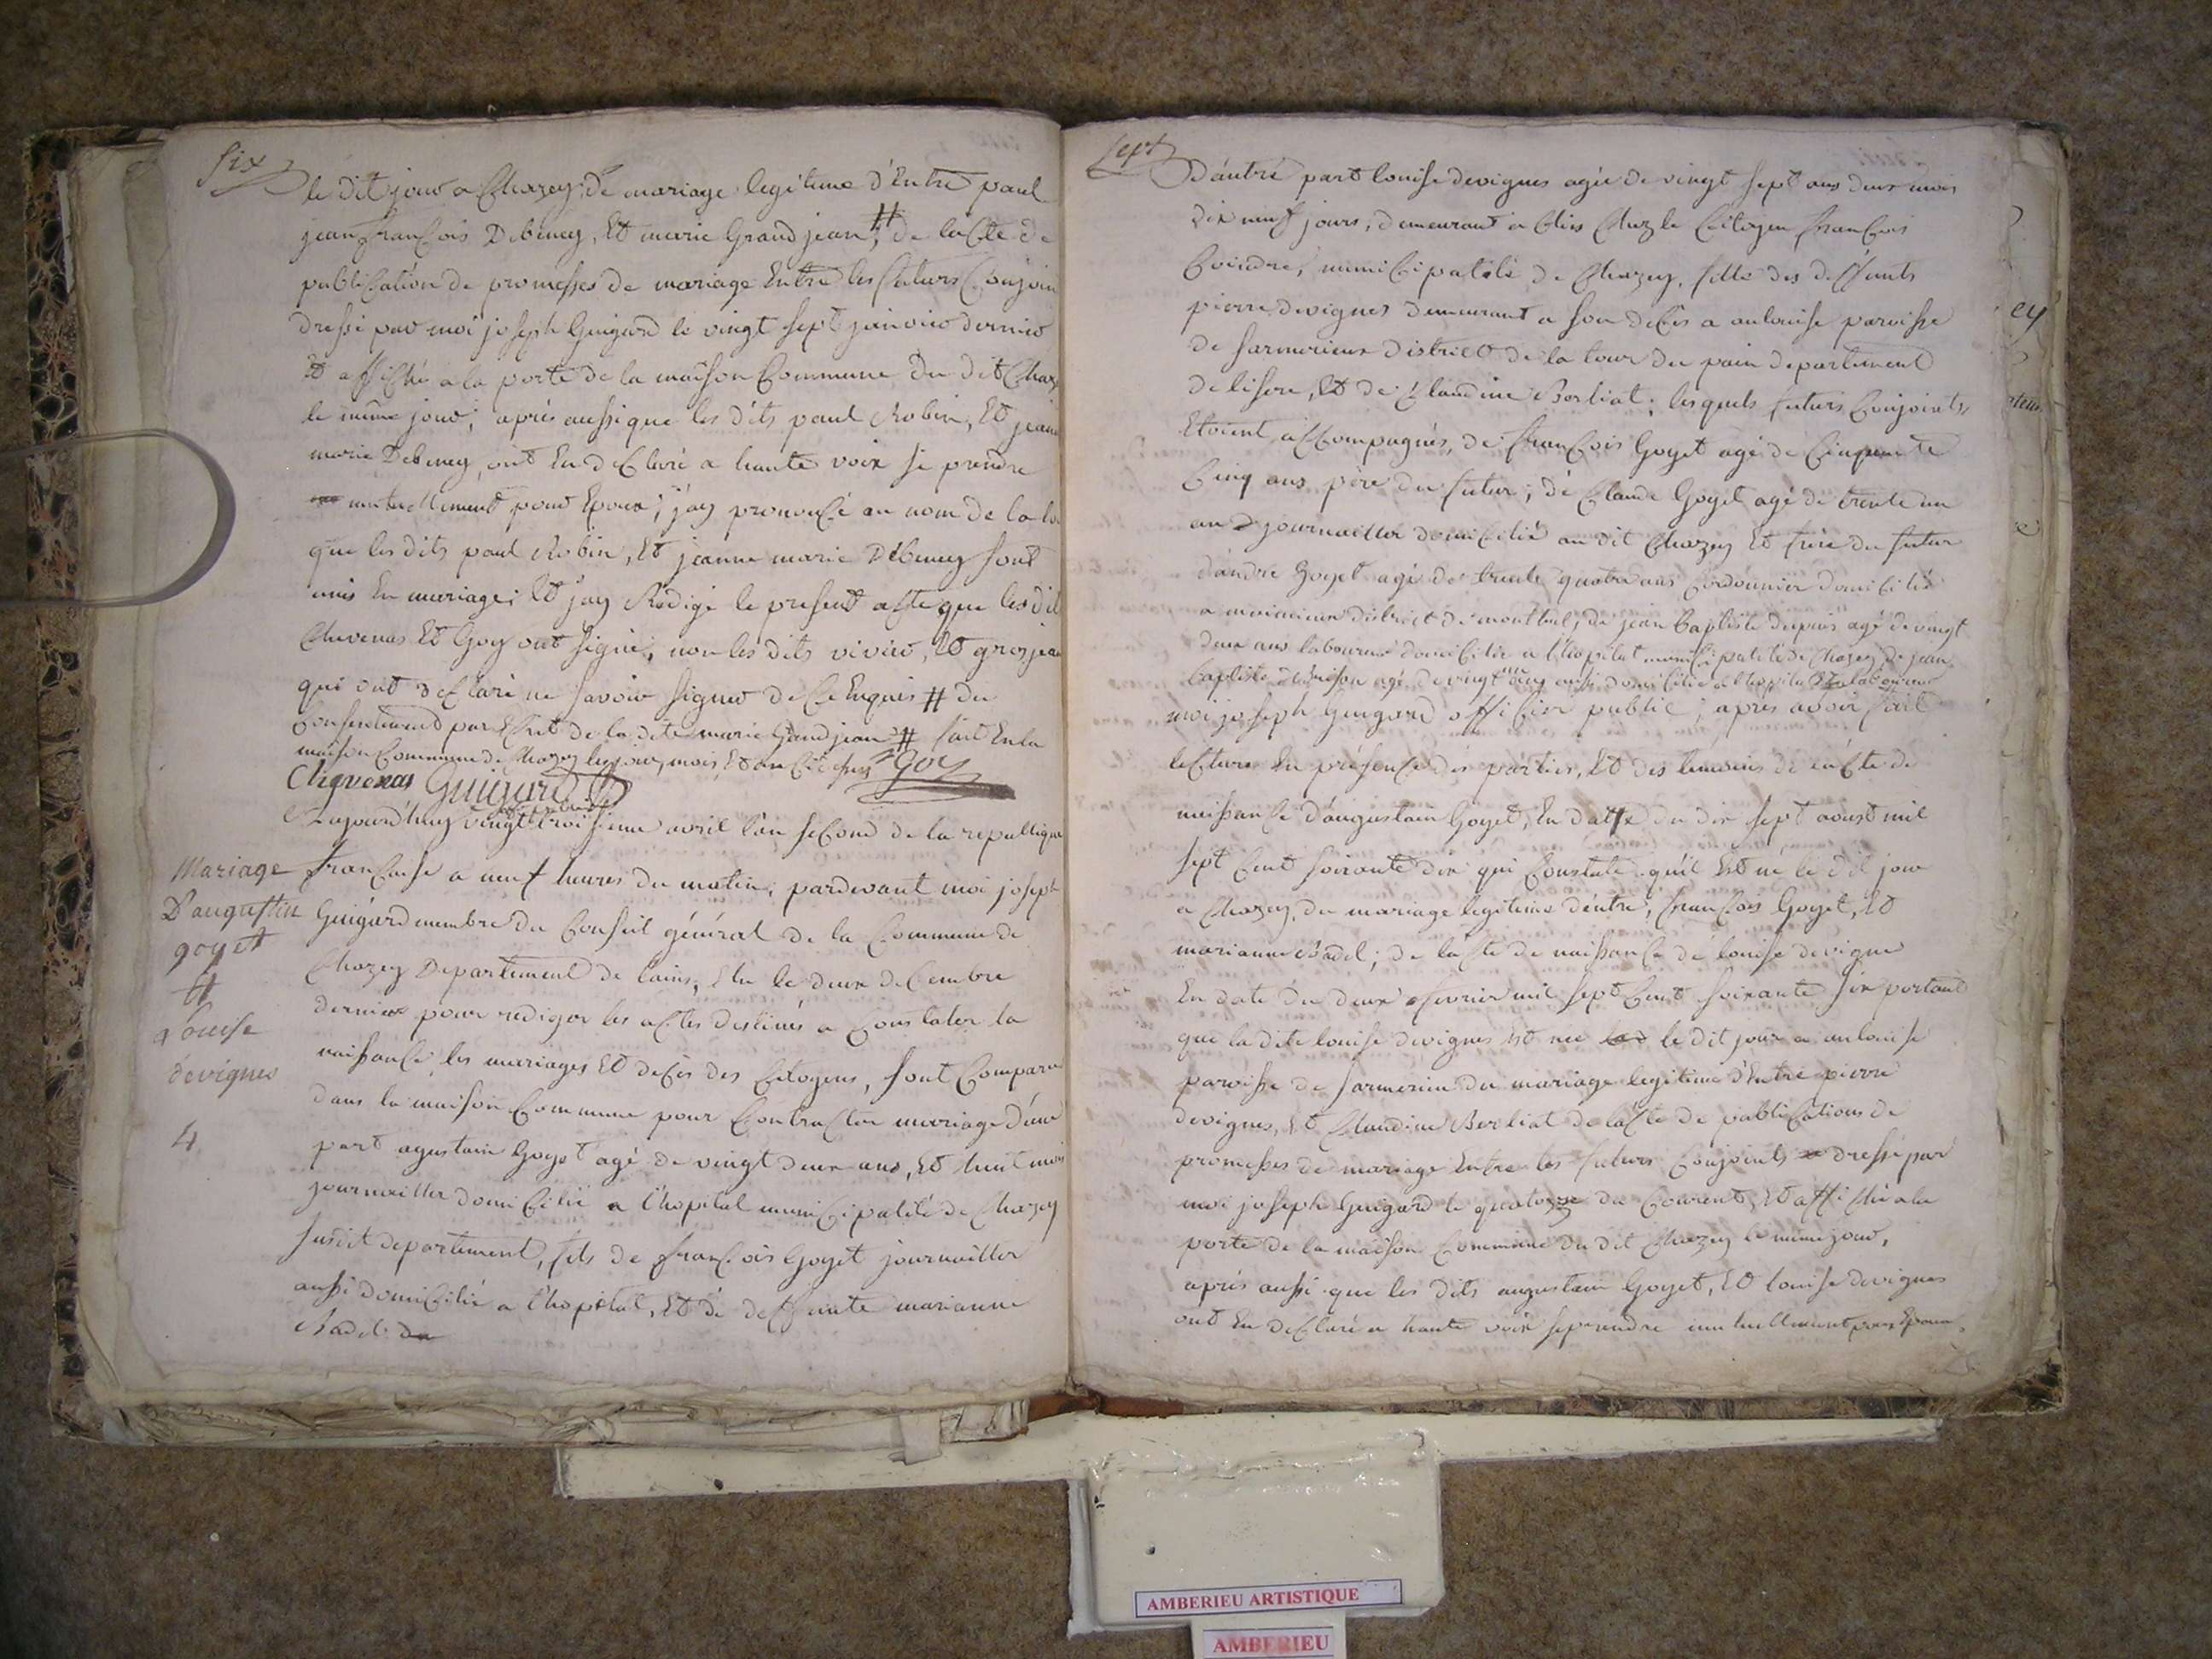 six
le dit jour a Chazey, de mariage legitime d'Entre paul
jean francois Debeney, Et marie Grand jean, # de lacte de
publication de promesses de mariage Entre les futurs Conjoin
dressé par moi joseph Guigard le vingt sept janvier dernier
Et affiché a la porte de la maison Commune du dit Chaz
le même jour; après aussi que les dits paul Robin, Et jeanne
marie Debeney ont En déclaré a haute voix se prendre
mutuellement pour Epoux; j'ay prononcé au nom de la loi
que les dits paul Robin, Et jeanne marie Debeney sont
unis En mariage; Et j'ay Redigé le present acte que les dit
Chevenas Et Goy ont signé, non les dits vivier, Et grosjean
qui ont declaré ne savoir signer de ce Enquis # du
Consentement par Ecrit de la dite marie Grandjean # fait En la
maison Commune de Chazey les jour, mois, Et an ci dessus Goy
Chevenas Guigard
Aujourd'huy vingt troisieme avril l'an second de la republique
Mariage
D'augustin
goget
Et
Louise
devignes
4
francaise a neuf heures du matin; pardevant moi joseph
Guigard membre du Conseil général de la Commune de
Chazey Departement de lain, Elu le deux decembre
dernier pour rediger les actes destinés a Constater la
naissance, les mariages Et decés des Citoyens, sont Comparu
dans la maison Commune pour Contracter mariage d'une
part agustain Goget agé de vingt deux ans, Et huit mois
journailler domicilié a l'hopital municipalité de Chazey
susdit departement, fils de francois Goget journailler
aussi domicilié a l'hopital, Et de deffunte marianne
Badel
sept
D'autre part louise devignes agée de vingt sept ans deux mois
dix neuf jours, demeurant a Chez le Citoyen francois
municipalité de Chazey, fille des deffunts
pierre devignes demeurant a son decés a anlouise paroisse
de sarmerieux district de la tour du pain departement
de lisere, Et de Claudine Berliat; lesquels futurs Conjoints,
Etoient accompagnés, de francois Goget agé de Cinquante
Cinq ans père du futur; de Claude Goget agé de trente un
an journailler domicilié au dit Chazey Et frère du futur
d'andré Goget agé de trente quatre ans Cordonnier domicilié
a district de montluel; de jean Baptiste dupuis agé de vingt
deux ans laboureur domicilié a l'hopital municipalité de Chazey, de jean
baptiste agé de vingt cinq aussi domicilié a l'hopital
moi joseph Guigard officier public; après avoir fait
lecture En présence des parties, Et des temoins de l'acte de
naissance d'augustain Goget, En datte du dix sept aoust mil
sept Cent soixante dix qui Constate qu'il Est né le dit jour
a Chazey, du mariage legitime d'entre, francois Goget, Et
marianne Badel; de lacte de naissance de louise devigne
En date du deux fevrier mil sept Cent soixante six portant
que la dite louise devignes Est née le dit jour a anlouise
paroisse de sarmerieu du mariage legitime d'Entre pierre
devignes, Et Claudine Berliat de lacte de publications de
promesses de mariage Entre les futurs Conjoints dressé par
moi joseph Guigard le quatorze du Courent, Et affiché a la
porte de la maison Commune du dit Chazey le même jour,
après aussi que les dits augustain Goget, Et louise devignes
ont En declaré a haute voix se prendre mutuellement pour Epoux,
ey
AMBERIEU ARTISTIQUE
AMBERIEU